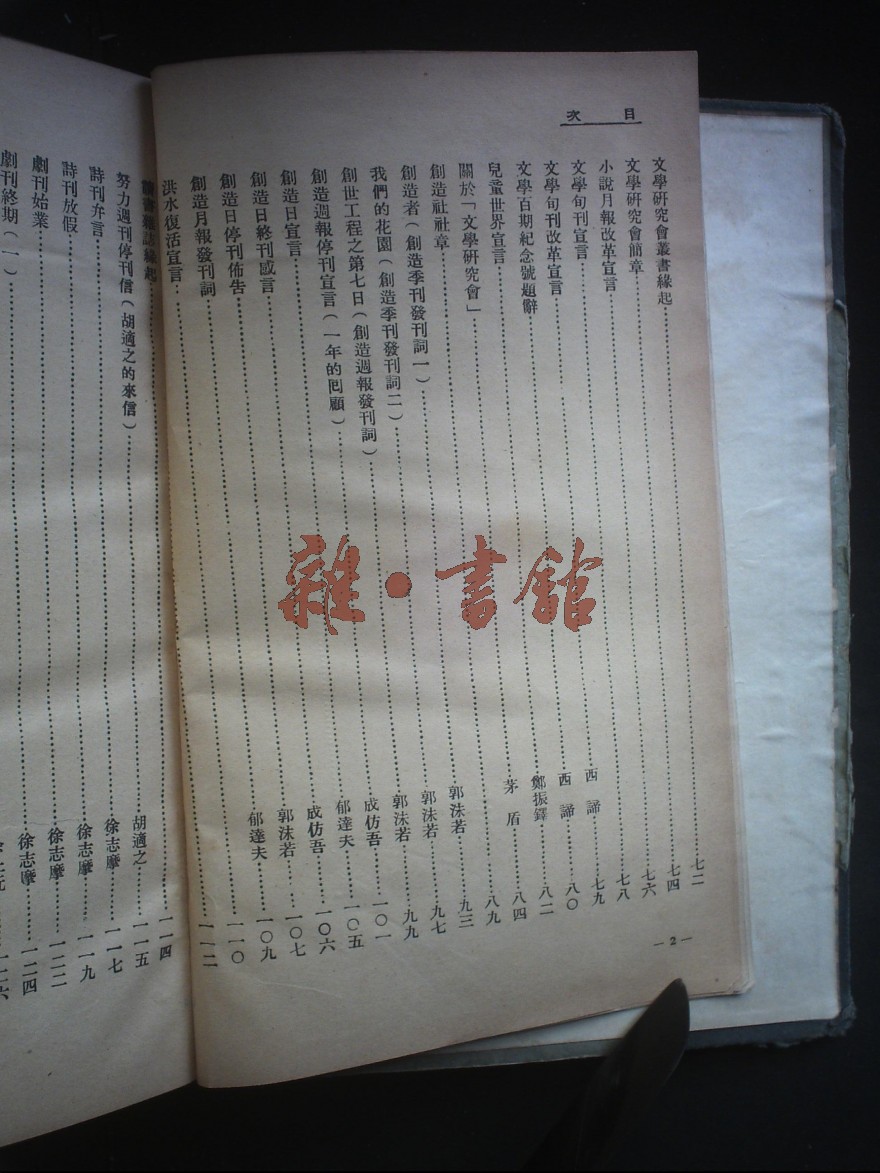 目次
文學研究會叢書緣起……七二
文學研究會簡章……七四
小說月報改革宣言……七六
文學旬刊宣言……七八
文學旬刊改革宣言……西諦……七九
文學百期紀念號題辭……西諦……八〇
兒童世界宣言……鄭振鐸……八二
關於「文學研究會」……茅盾……八四
創造社社章……八九
創造者（創造季刊發刊詞一）……郭沫若……九三
我們的花園（創造季刊發刊詞二）……郭沫若……九七
創世工程之第七日（創造週報發刊詞）……郭沫若……九九
創造週報停刊宣言（一年的回顧）……成仿吾……一〇一
創造日宣言……郁達夫……一〇五
創造日終刊感言……成仿吾……一〇六
創造日停刊佈告……郭沫若……一〇七
創造月報發刊詞……郁達夫……一〇九
洪水復活宣言……一一〇
一一二
—2—
讀書雜誌緣起……一一四
努力週刊停刊信（胡適之的來信）……胡適之……一一五
詩刊弁言……徐志摩……一一七
詩刊放假……徐志摩……一一九
劇刊始業……徐志摩……一二二
劇刊終期（一）……徐志摩……一二四
一二六
雜·書館